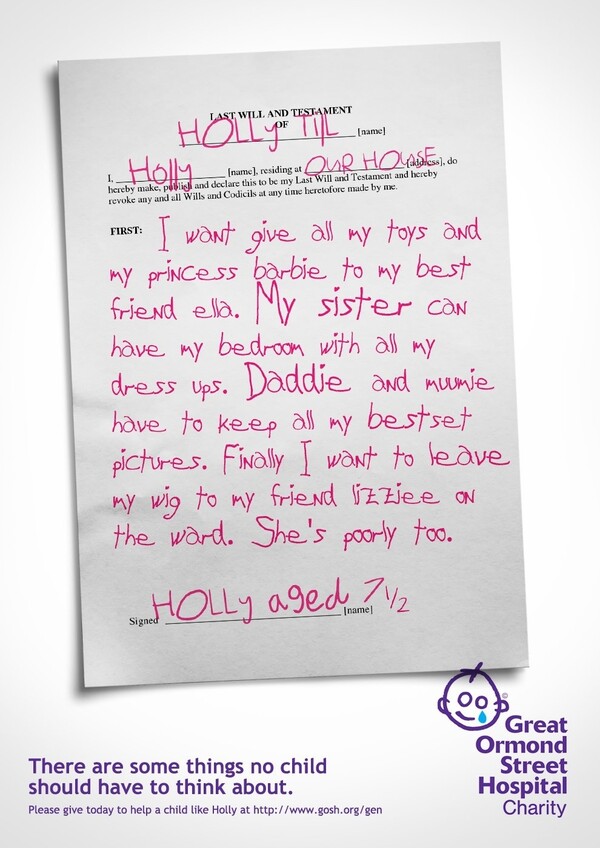 LAST WILL AND TESTAMENT
OF
HOLLY TILL [name]
I, Holly [name], residing at OUR HOUSE [address], do
hereby make, publish and declare this to be my Last Will and Testament and hereby
revoke any and all Wills and Codicils at any time heretofore made by me.
FIRST: I want give all my toys and
my princess barbie to my best
friend ella. My sister can
have my bedroom with all my
dress ups. Daddie and muumie
have to keep all my bestset
pictures. Finally I want to leave
my wig to my friend lizziee on
the ward. She's poorly too.
Signed HOLLY aged 7 1/2 [name]
©
Great
Ormond
Street
Hospital
Charity
There are some things no child
should have to think about.
Please give today to help a child like Holly at http://www.gosh.org/gen